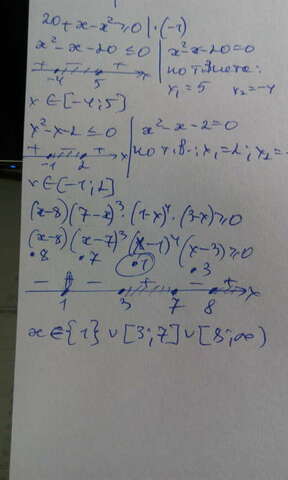 20 + x - x² ≥ 0 | · (-1)
x² - x - 20 ≤ 0 | x² - x - 20 = 0
+ - + по т. Виета:
-4 5 x₁ = 5 x₂ = -4
x ∈ [-4; 5]
x² - x - 2 ≤ 0 | x² - x - 2 = 0
+ - + x по т. В-: x₁ = 2; x₂ = -
-1 2
x ∈ [-1; 2]
(x-8)(7-x)³ · (1-x)⁴ · (3-x) ≥ 0
(x-8)(x-7)³(x-1)⁴(x-3) ≥ 0
• 8 • 7 • 1 • 3
- - + - + x
1 3 7 8
x ∈ {1} ∪ [3; 7] ∪ [8; ∞)